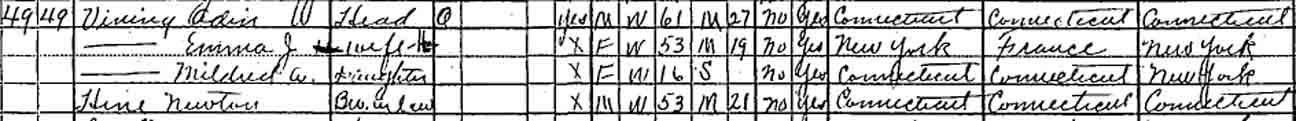 49 49 Vining Odin W Head O Yes M W 61 M 27 no Yes Connecticut Connecticut Connecticut
—— Emma J wife-H X F W 53 M 19 no Yes New York France New York
—— Mildred W. daughter X F W 16 S no Yes Connecticut Connecticut New York
Hine Newton Bro. in law X M W 53 M 21 no Yes Connecticut Connecticut Connecticut